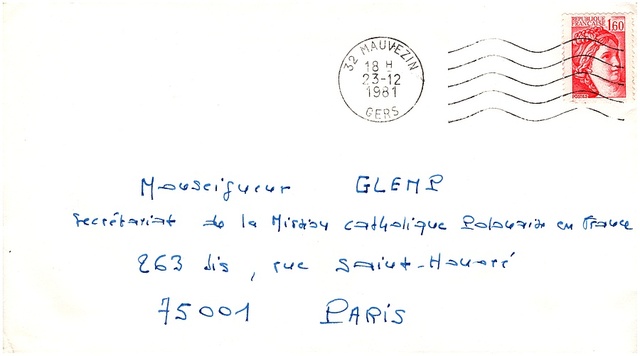 REPUBLIQUE FRANÇAISE
1,60
POSTES
32 MAUVEZIN
18 H
23-12
1981
GERS
Monseigneur GLEMP
Secrétariat de la Mission catholique Polonaise en France
263 bis, rue Saint-Honoré
75001 PARIS